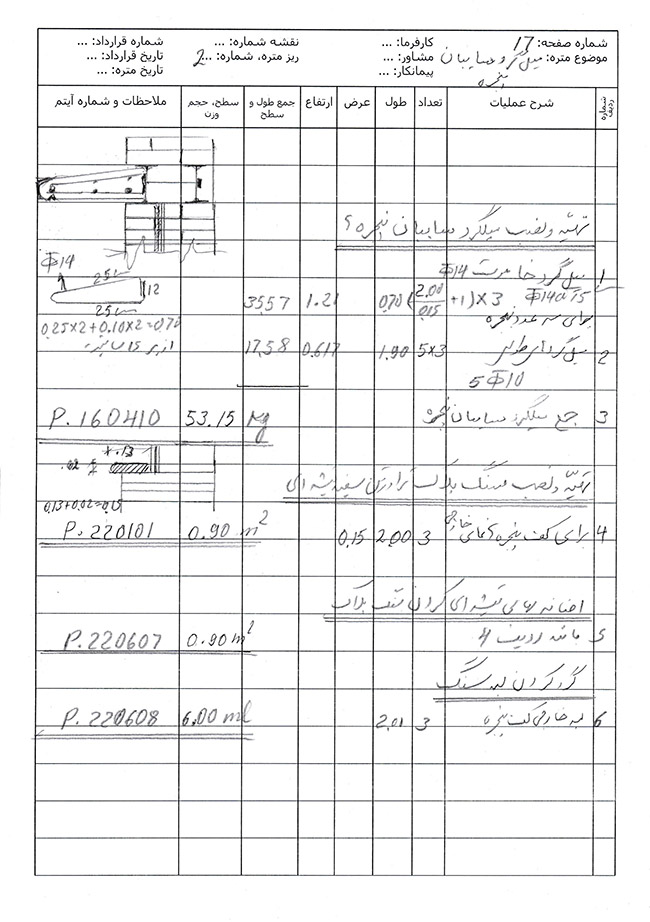 شماره صفحه: 17
کارفرما: ...
نقشه شماره: ...
شماره قرارداد: ...
موضوع متره: میلگرد سایبان پنجره
مشاور: ...
ریز متره، شماره: ...2
تاریخ قرارداد: ...
پیمانکار: ...
تاریخ متره: ...
شماره ردیف
شرح عملیات
تعداد
طول
عرض
ارتفاع
جمع طول و سطح
سطح، حجم وزن
ملاحظات و شماره آیتم
تهیه و نصب میلگرد سایبان پنجره
1
Φ14
Φ14@15
(2.00/0.15 +1)×3
0.70
1.21
35.57
برای سه عدد پنجره
Φ14
25
12
25
0.25×2+0.10×2=0.70
2
5Φ10
5×3
1.90
0.617
17.58
3 جمع میلگرد سایبان پنجره
Kg
53.15
P.160410
.13
.02
0.13+0.02=0.15
تهیه و نصب سنگ پلاک تراورتن سفید تیشه ای
4 برای کف پنجره نمای خارجی
3
2.00
0.15
0.90 m²
P.220101
اضافه بهای تیشه ای کردن سنگ پلاک
5 مانند ردیف 4
0.90 m²
P.220607
گرد کردن لبه سنگ
6 لبه خارجی کف پنجره
3
2.01
6.00 ml
P.220608